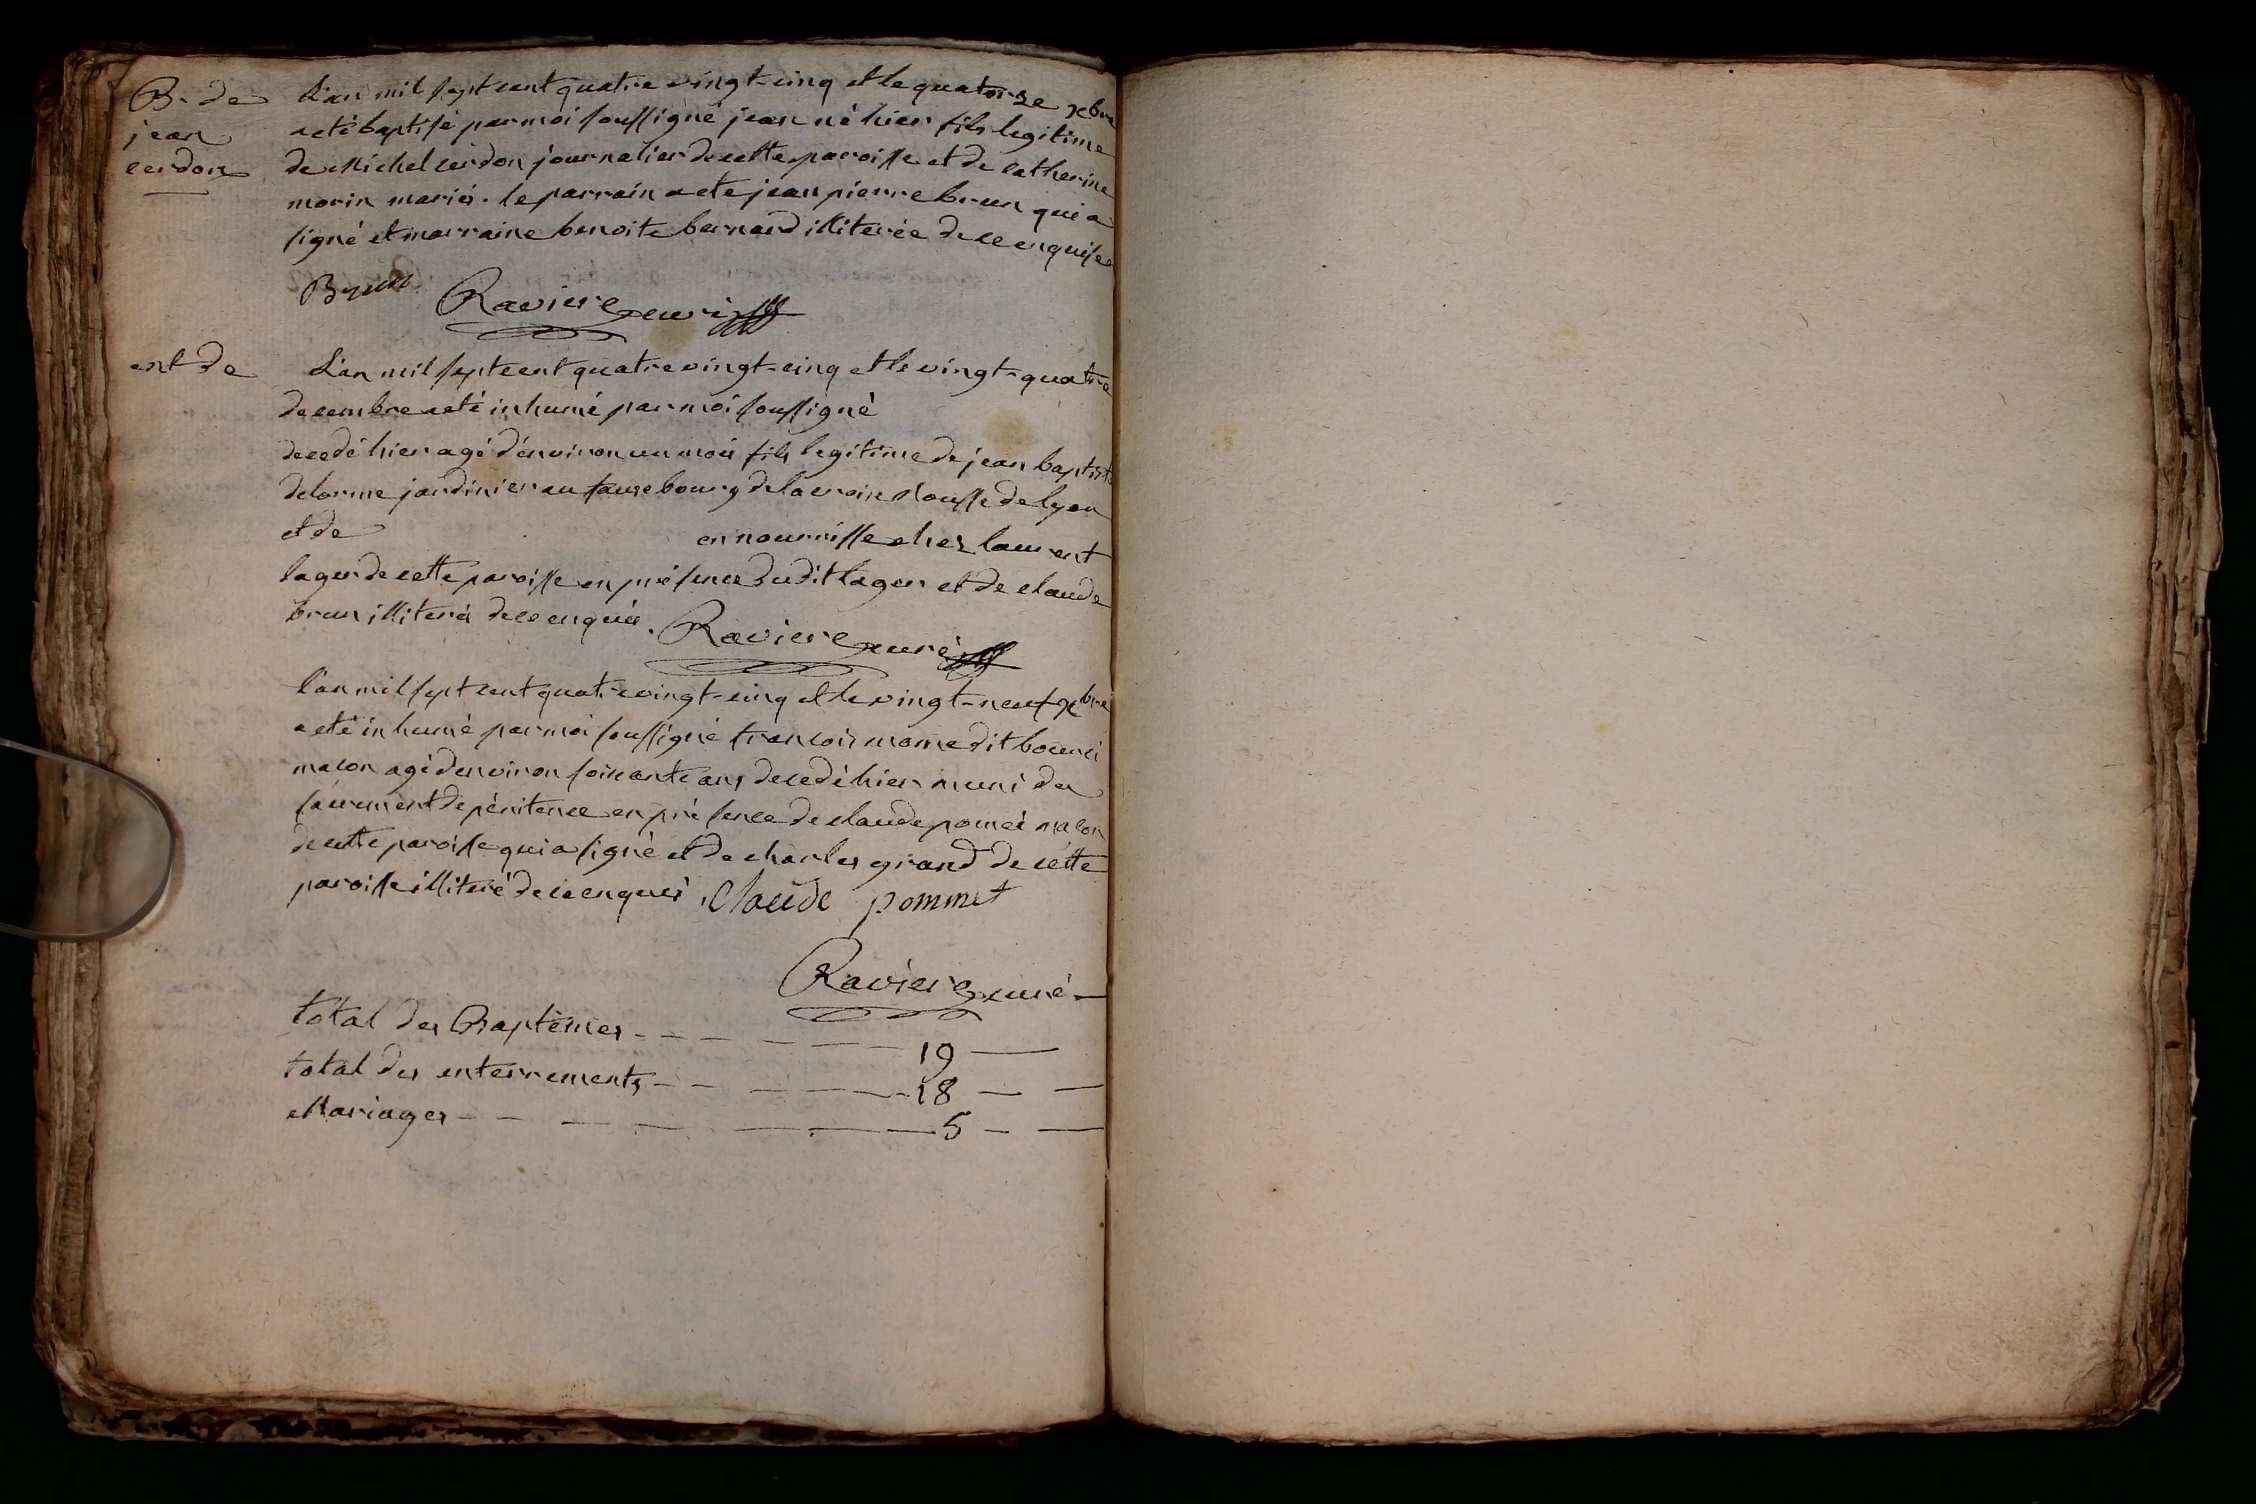 B. de
jean
cerdon
L'an mil sept cent quatre vingt-cinq et le quatorze xbre
a eté baptisé par moi soussigné jean né hier fils legitime
de Michel cerdon journalier de cette paroisse et de catherine
morin mariés. le parrain a ete jean pierre brun qui a
signé et marraine benoite bernard illiterée de ce enquise
Brun Raviere curé
ent de
L'an mil sept cent quatre vingt-cinq et le vingt-quatre
decembre a eté inhumé par moi soussigné
decedé hier agé d'environ un mois fils legitime de jean baptiste
delorme jardinier au fauxbourg de la croix rousse de lyon
et de en nourrisse chez laurent
lager de cette paroisse en présence dudit lager et de claude
brun illiterés de ce enquis. Raviere curé
l'an mil sept cent quatre vingt-cinq et le vingt-neuf xbre
a eté inhumé par moi soussigné francois dit
macon agé d'environ soixante ans decedé hier muni du
sacrement de pénitence en présence de claude pomet macon
de cette paroisse qui a signé et de charles grand de cette
paroisse illiteré de ce enquis. Claude pommet
Raviere curé
total des Baptêmes 19
total des enterrements 18
Mariages 5